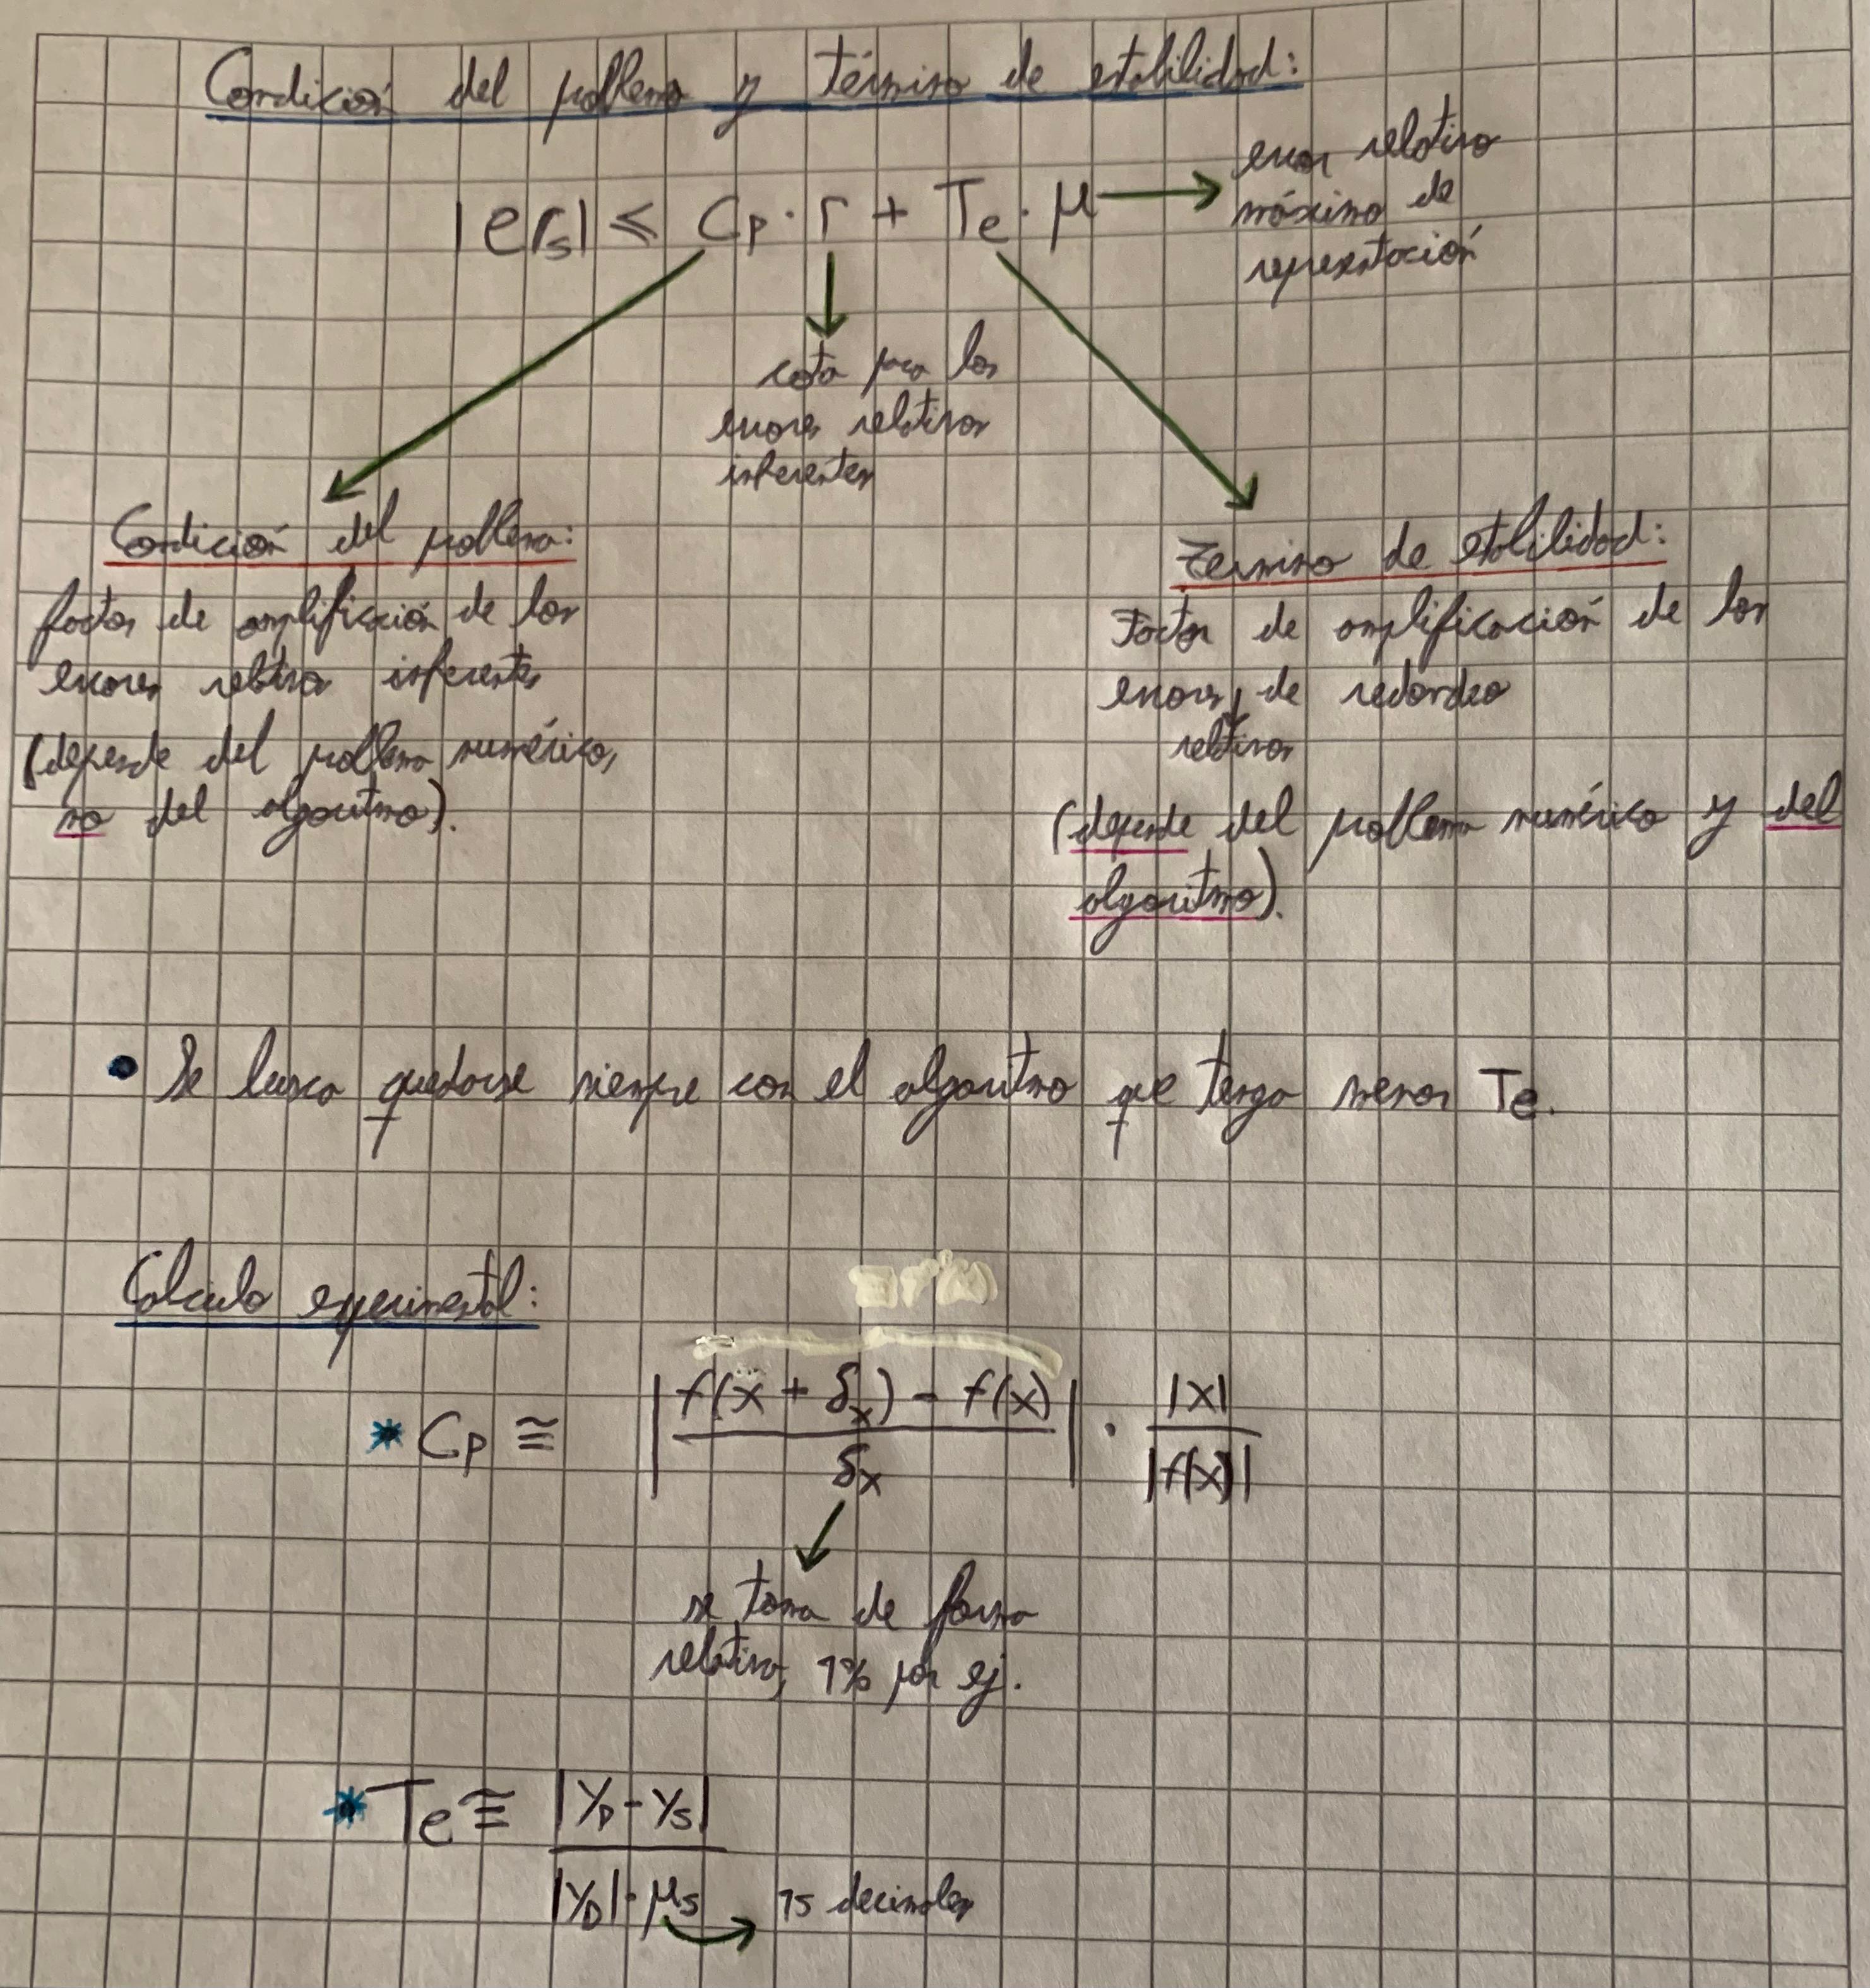 Condición del problema y término de estabilidad:
|erₛ| ≤ Cp · r + Te · μ → error relativo
máximo de
representación
cota para los
errores relativos
inherentes
Condición del problema:
factor de amplificación de los
errores relativos inherentes
(depende del problema numérico,
no del algoritmo).
Término de estabilidad:
Factor de amplificación de los
errores de redondeo
relativos
(depende del problema numérico y del
algoritmo).
• Se busca quedarse siempre con el algoritmo que tenga menor Te.
Calculo experimental:
* Cp ≅ |(f(x + δₓ) - f(x)) / δₓ| · |x| / |f(x)|
se toma de forma
relativa, 1% por ej.
* Te ≅ |y_D - y_S| / (|y_D| · μ_S) → 15 decimales